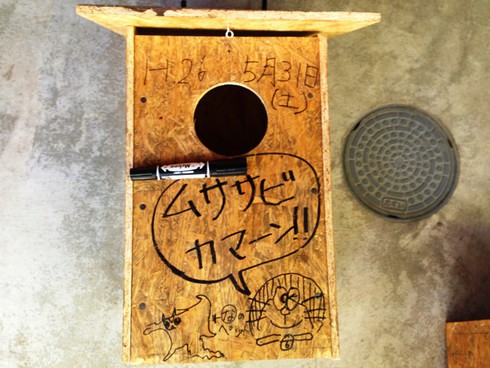 H.26 5月31日
(土)
ムササビ
カマーン!!